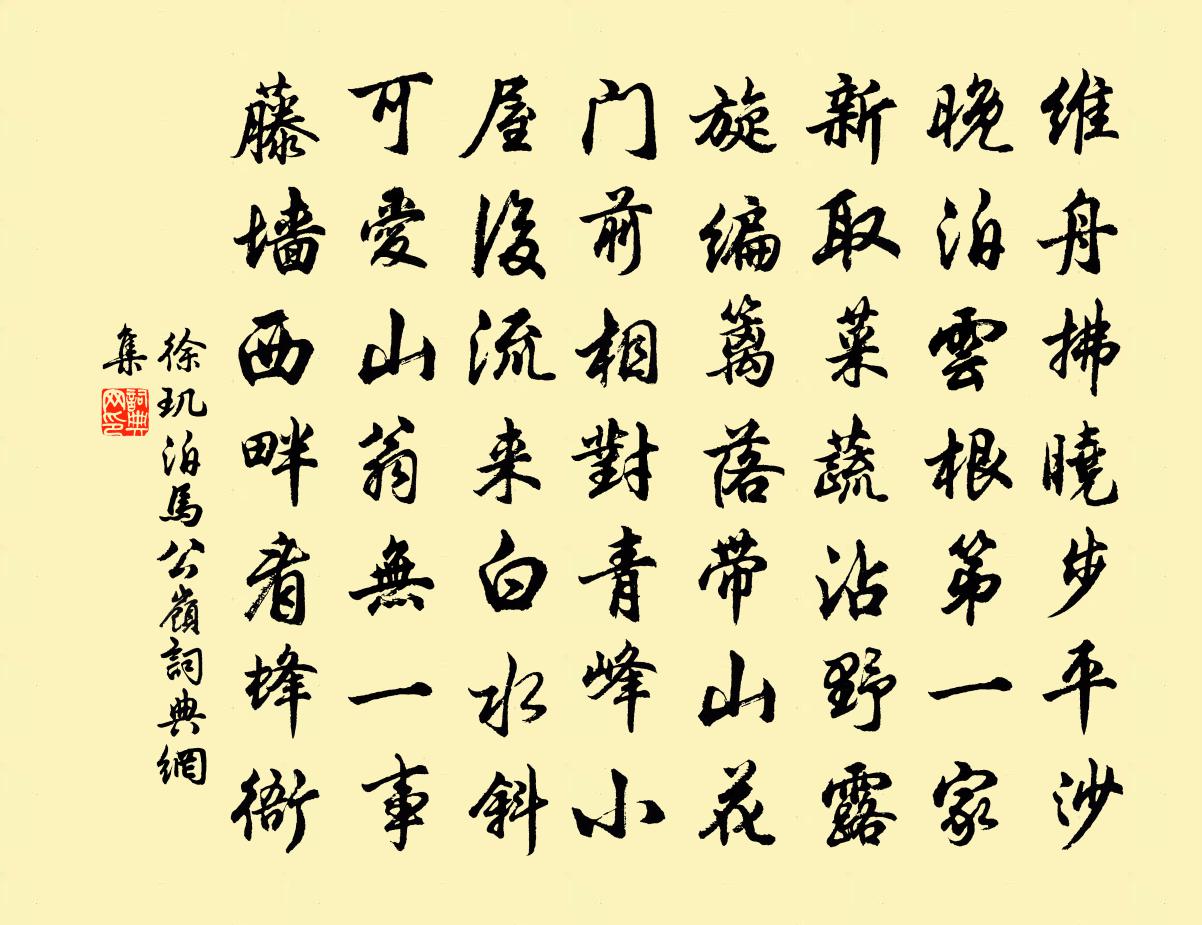 維舟拂曉步平沙
晚泊雲根第一家
新取菜蔬沾野露
旋編籬落带山花
门前相對青峰小
屋後流来白水斜
可愛山翁無一事
藤墙西畔看蜂衙
徐玑泊馬公嶺詞典網
集
詞典網印